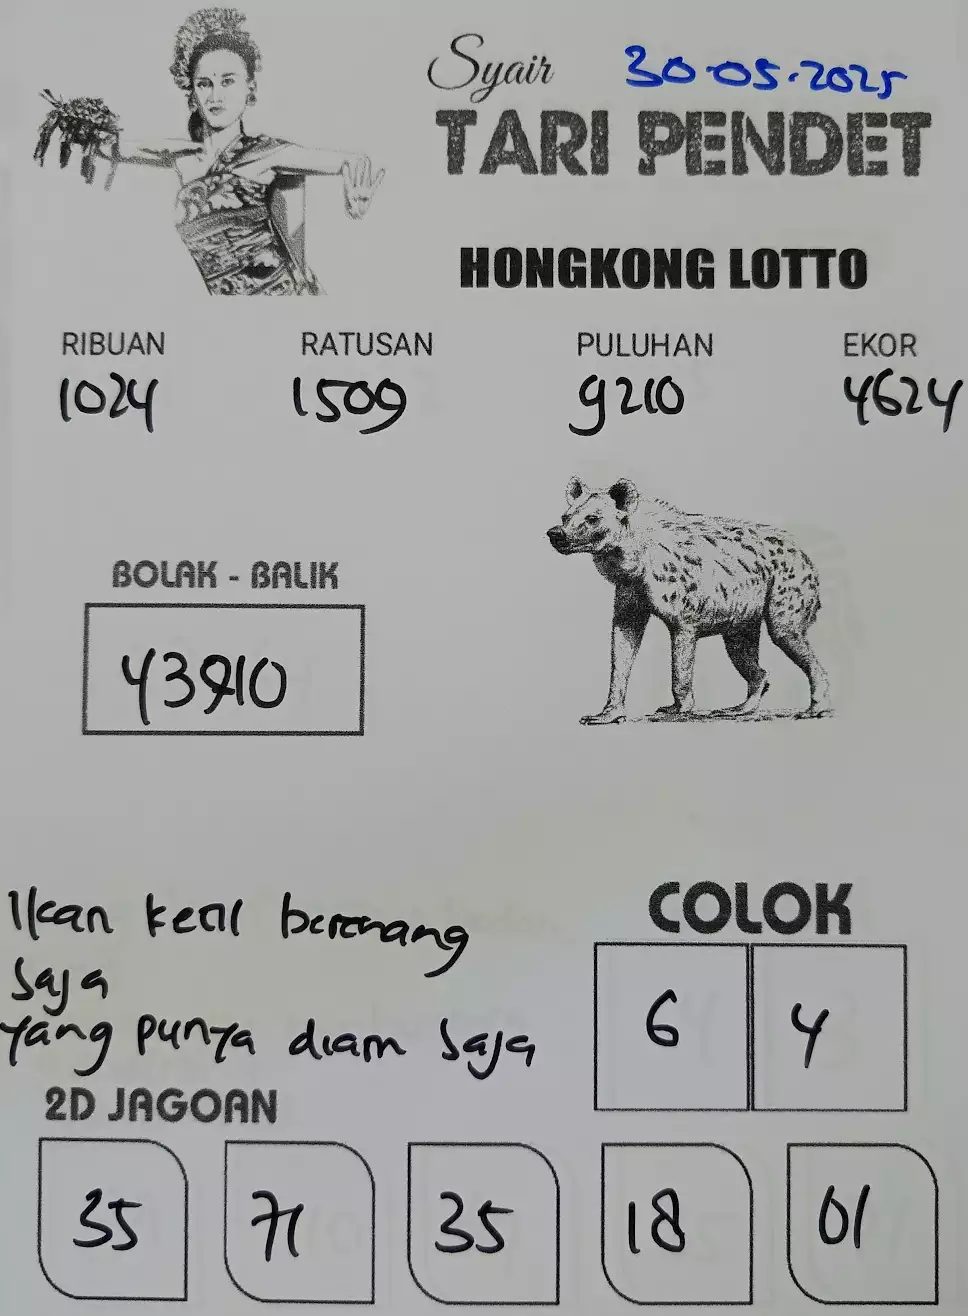 Syair 30-05-2025
TARI PENDET
HONGKONG LOTTO
RIBUAN RATUSAN PULUHAN EKOR
1024 1509 9210 4624
BOLAK - BALIK
43910
Ikan kecil berenang
saja
yang punya diam saja
COLOK
6 4
2D JAGOAN
35 71 35 18 01